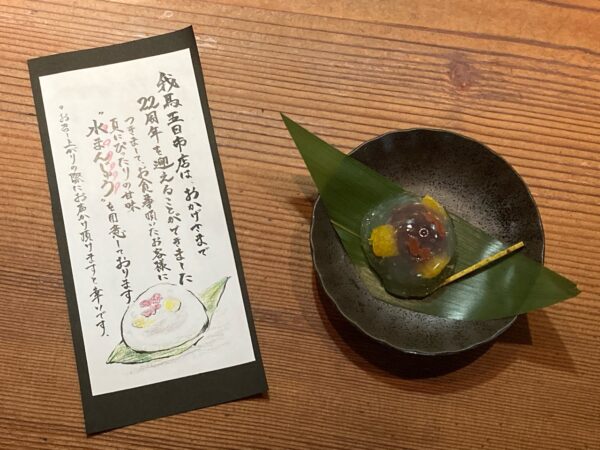 我馬五日市店は、おかげさまで
22周年を迎えることができました
つきまして、お食事頂いたお客様に
夏にぴったりの甘味
"水まんじゅう"を用意しております
"お召し上がりの際にお声かけ頂けますと幸いです。